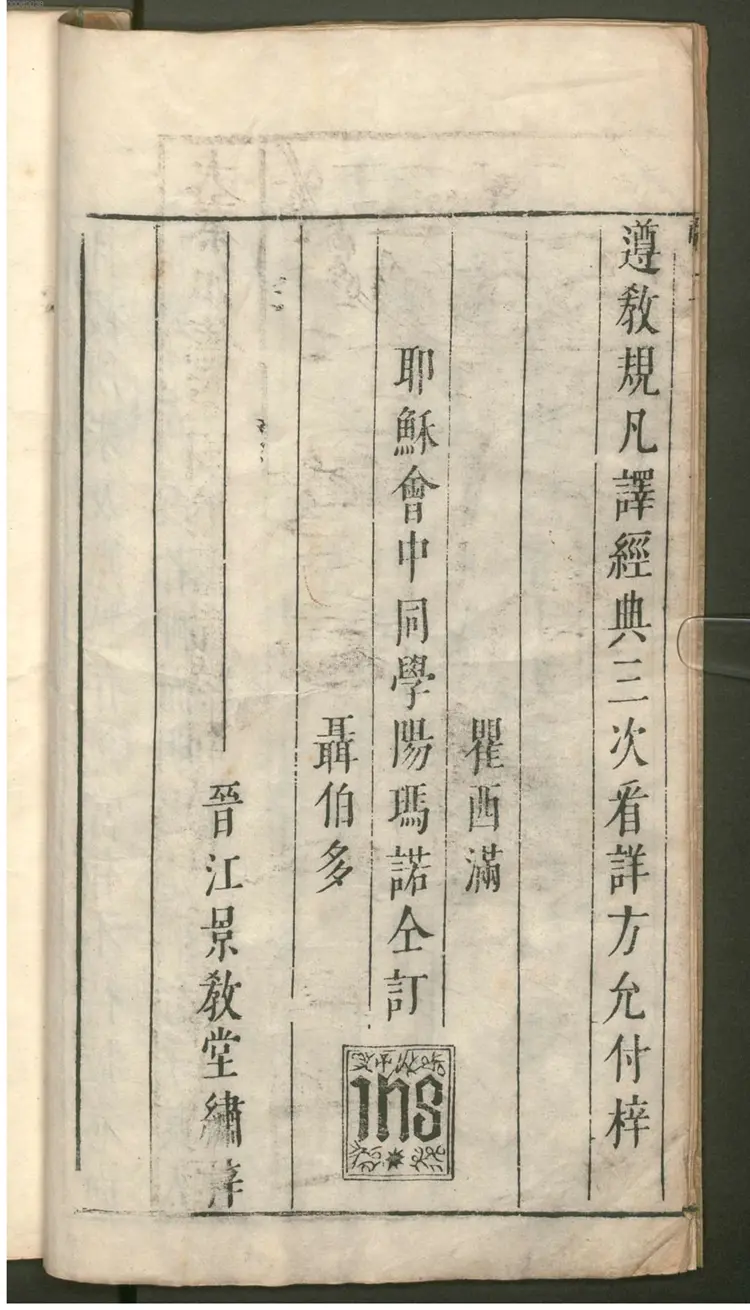 遵敎規凡譯經典三次看詳方允付梓
瞿西滿
耶穌會中同學陽瑪諾仝訂
聶伯多
晉江景敎堂繡梓
IHS